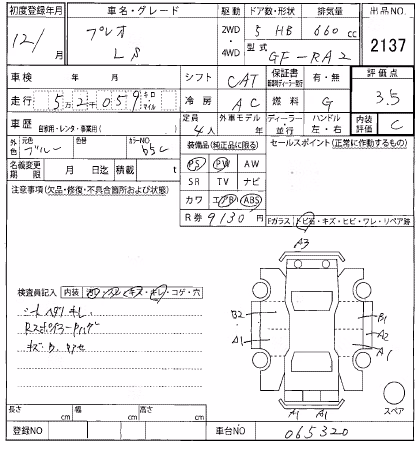 初度登録年月 車名・グレード 駆動 ドア数・形状 排気量 出品NO.
12/ 月 プレオ LS 2WD・4WD 5 HB 660 cc 2137
型式 GF-RA2
車検 年 月 シフト CAT 保証書 有・無 評価点
走行 52千059 キロ マイル 冷房 AC 燃料 G 3.5
車歴 自家用・レンタ・事業用( ) 定員 4人 外車モデル 年 ディーラー・並行 ハンドル 左・右 内装評価 C
外色 元色 ブルー 色替 カラーNO
装備品(純正品に限る) セールスポイント(正常に作動するもの)
名義変更期限 月 日迄 積載 t
PS PW AW
SR TV ナビ
カワ エアB ABS
R券 9130 円
注意事項(欠品・修復・不具合箇所および状態)
Fガラス(トビ石・キズ・ヒビ・ワレ・リペア跡)
A3
検査員記入 内装 ・キズ・キレ・コゲ・穴
シートヘタリキレ
B2 B1
A1 A2
A1
A1 A1
スペア
長さ cm 幅 cm 高さ cm
登録NO 車台NO 065320